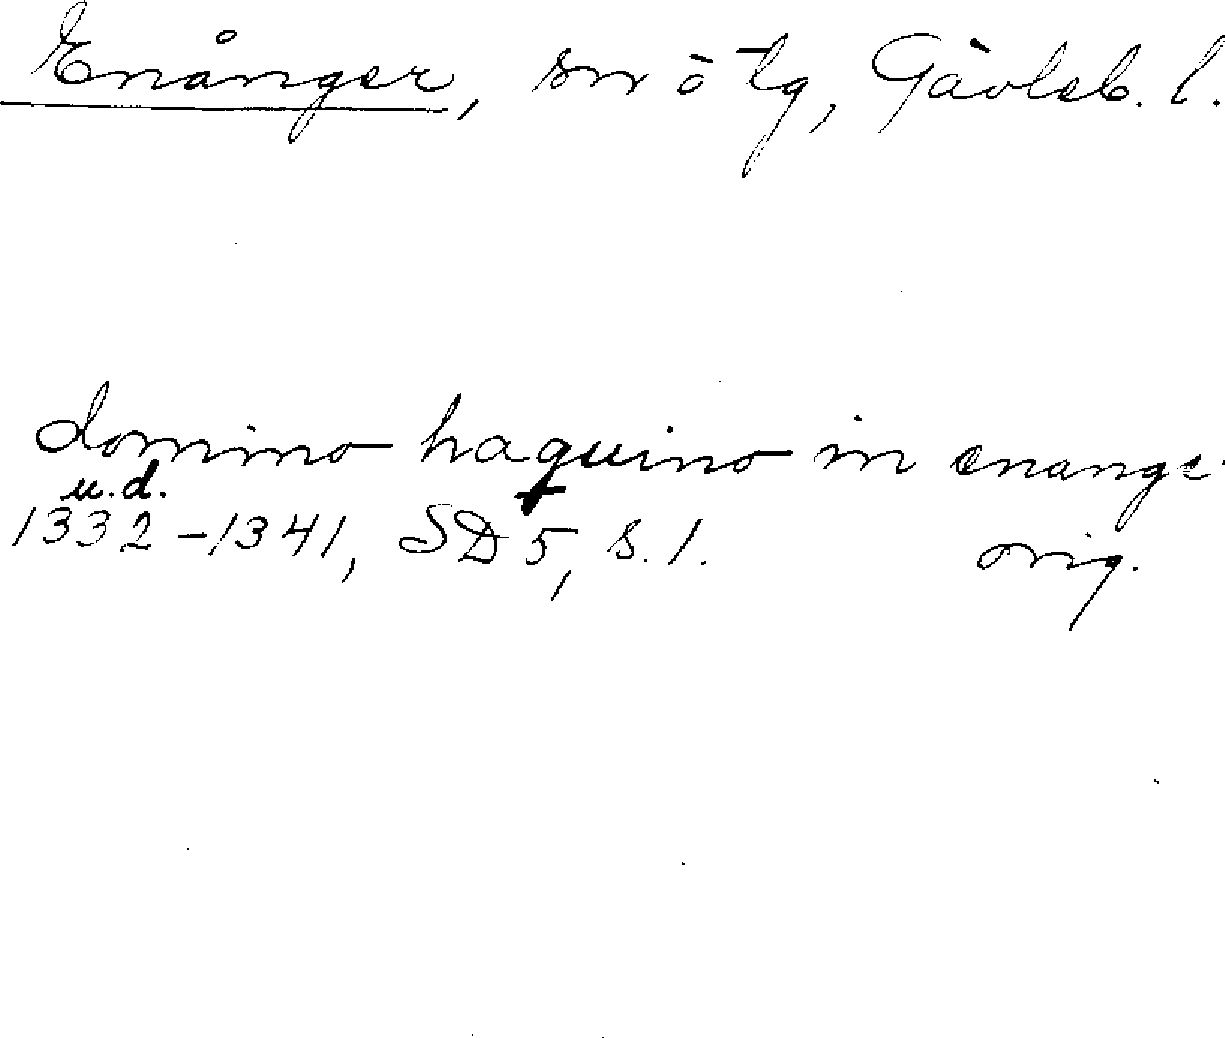 Enånger, sn ö tg, Gävleb. l.
domino haquino in enange
u.d.
1332-1341, SD 5, s. 1. orig.